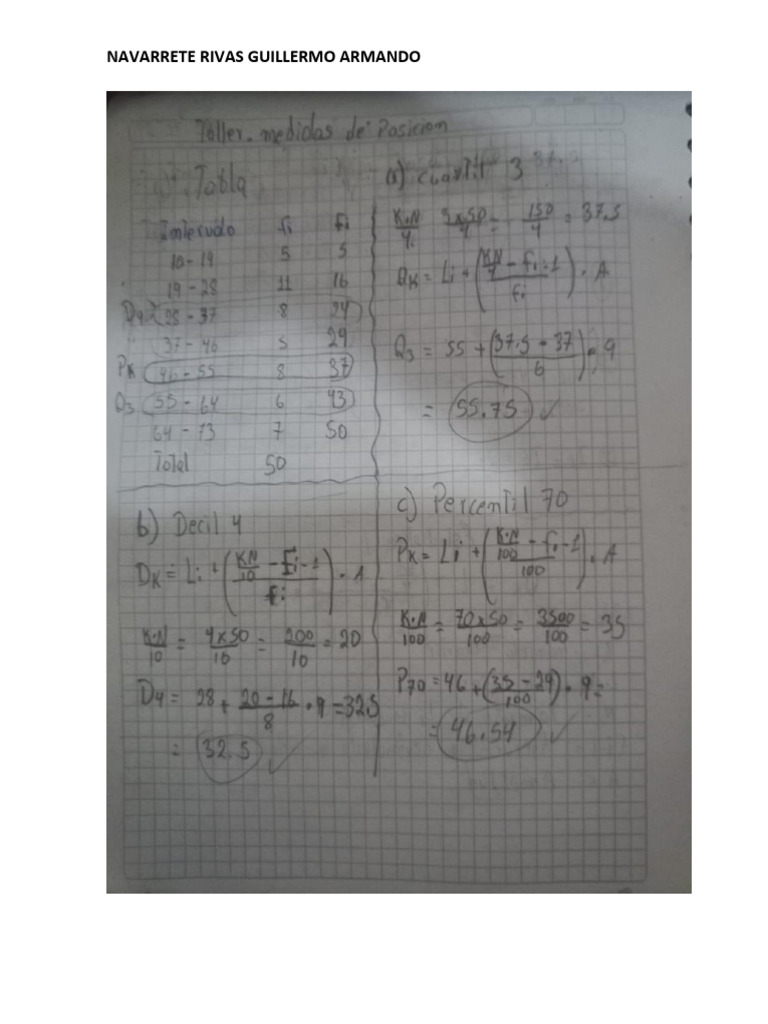 NAVARRETE RIVAS GUILLERMO ARMANDO
Taller. medidas de Posicion
Tabla
Intervalo fi Fi
10 - 19 5 5
19 - 28 11 16
D4 28 - 37 8 24
37 - 46 5 29
PK 46 - 55 8 37
Q3 55 - 64 6 43
64 - 73 7 50
Total 50
a) cuartil 3 37.
K.N/4 3x50/4 = 150/4 = 37.5
QK = Li + (KN/4 - fi-1 / fi) . A
Q3 = 55 + (37.5 - 37 / 6) . 9
= 55.75 ✓
b) Decil 4
DK = Li + (KN/10 - Fi-1 / fi) . A
K.N/10 = 4x50/10 = 200/10 = 20
D4 = 28 + 20 - 16 / 8 . 9 = 32.5
= 32.5 ✓
c) Percentil 70
PK = Li + (K.N/100 - fi-1 / 100) . A
K.N/100 = 70x50/100 = 3500/100 = 35
P70 = 46 + (35 - 29 / 100) . 9 =
= 46.54 ✓